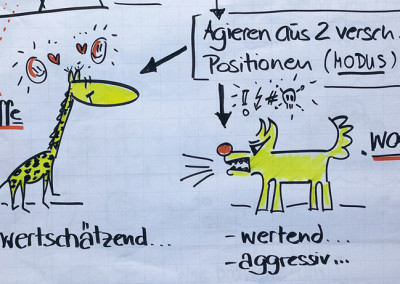 Agieren aus 2 versch.
Positionen (MODUS)
ffe
wo
wertschätzend...
- wertend...
- aggressiv...